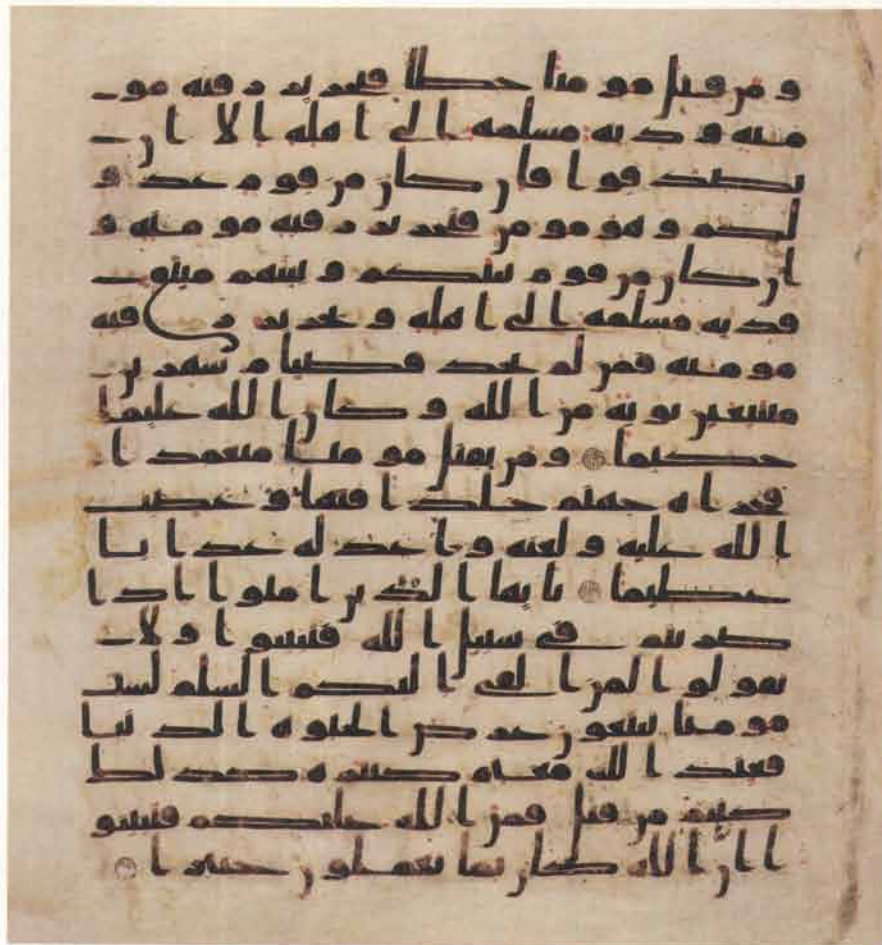 و من قتل مومنا خطا فتحرير رقبه مو
منه و ديه مسلمه الى اهله الا ان
يصدقوا فان كان من قوم عدو
لكم و هو مومن فتحرير رقبه مومنه و
ان كان من قوم بينكم و بينهم ميثق
فديه مسلمه الى اهله و تحرير رقبه
مومنه فمن لم يجد فصيام شهرين
متتبعين توبه من الله و كان الله عليما
حكيما و من يقتل مومنا متعمدا
فجزاه جهنم خلدا فيها و غضب
الله عليه و لعنه و اعد له عذابا
عظيما يايها الذين امنوا اذا
ضربتم في سبيل الله فتبينوا و لا
تقولوا لمن القى اليكم السلم لست
مومنا تبتغون عرض الحيوه الدنيا
فعند الله مغنم كثيره كذلك
كنتم من قبل فمن الله عليكم فتبينو
ا ان الله كان بما تعملون خبيرا